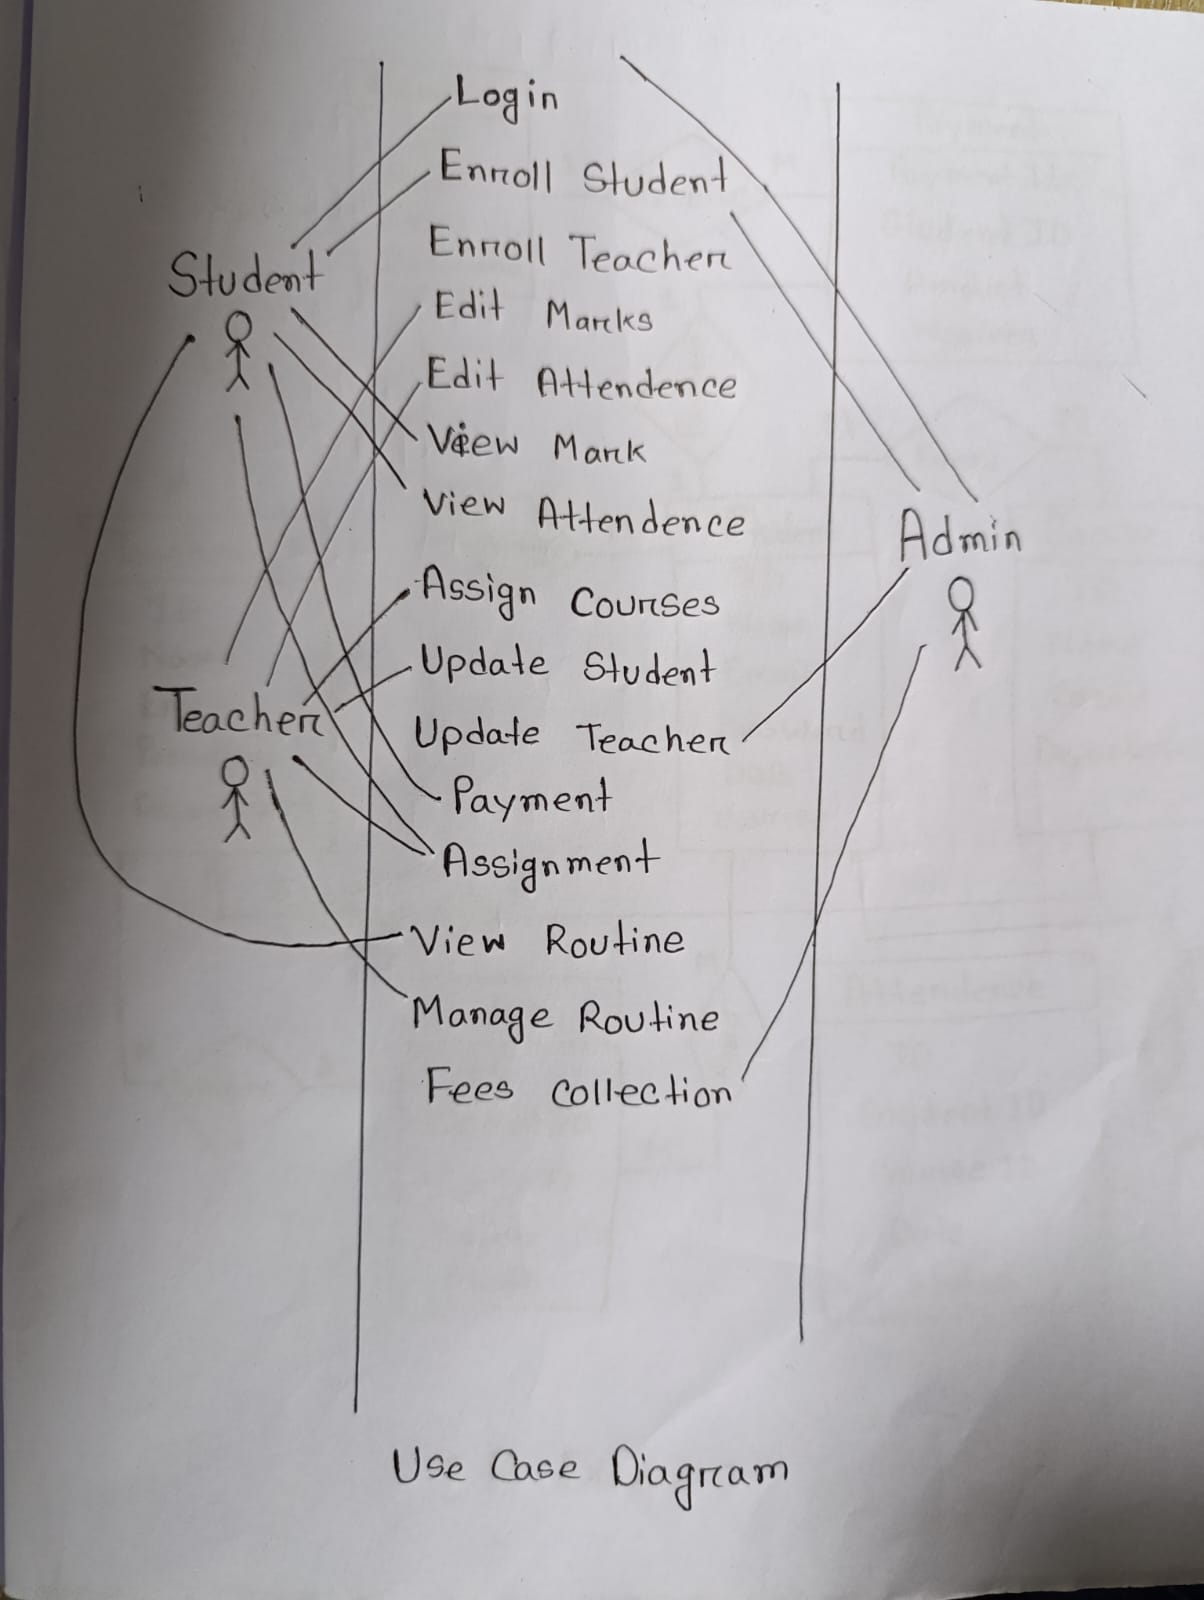 Login
Enroll Student
Enroll Teacher
Student
Edit Marks
Edit Attendence
View Mark
View Attendence
Admin
Assign Courses
Update Student
Teacher
Update Teacher
Payment
Assignment
View Routine
Manage Routine
Fees collection
Use Case Diagram